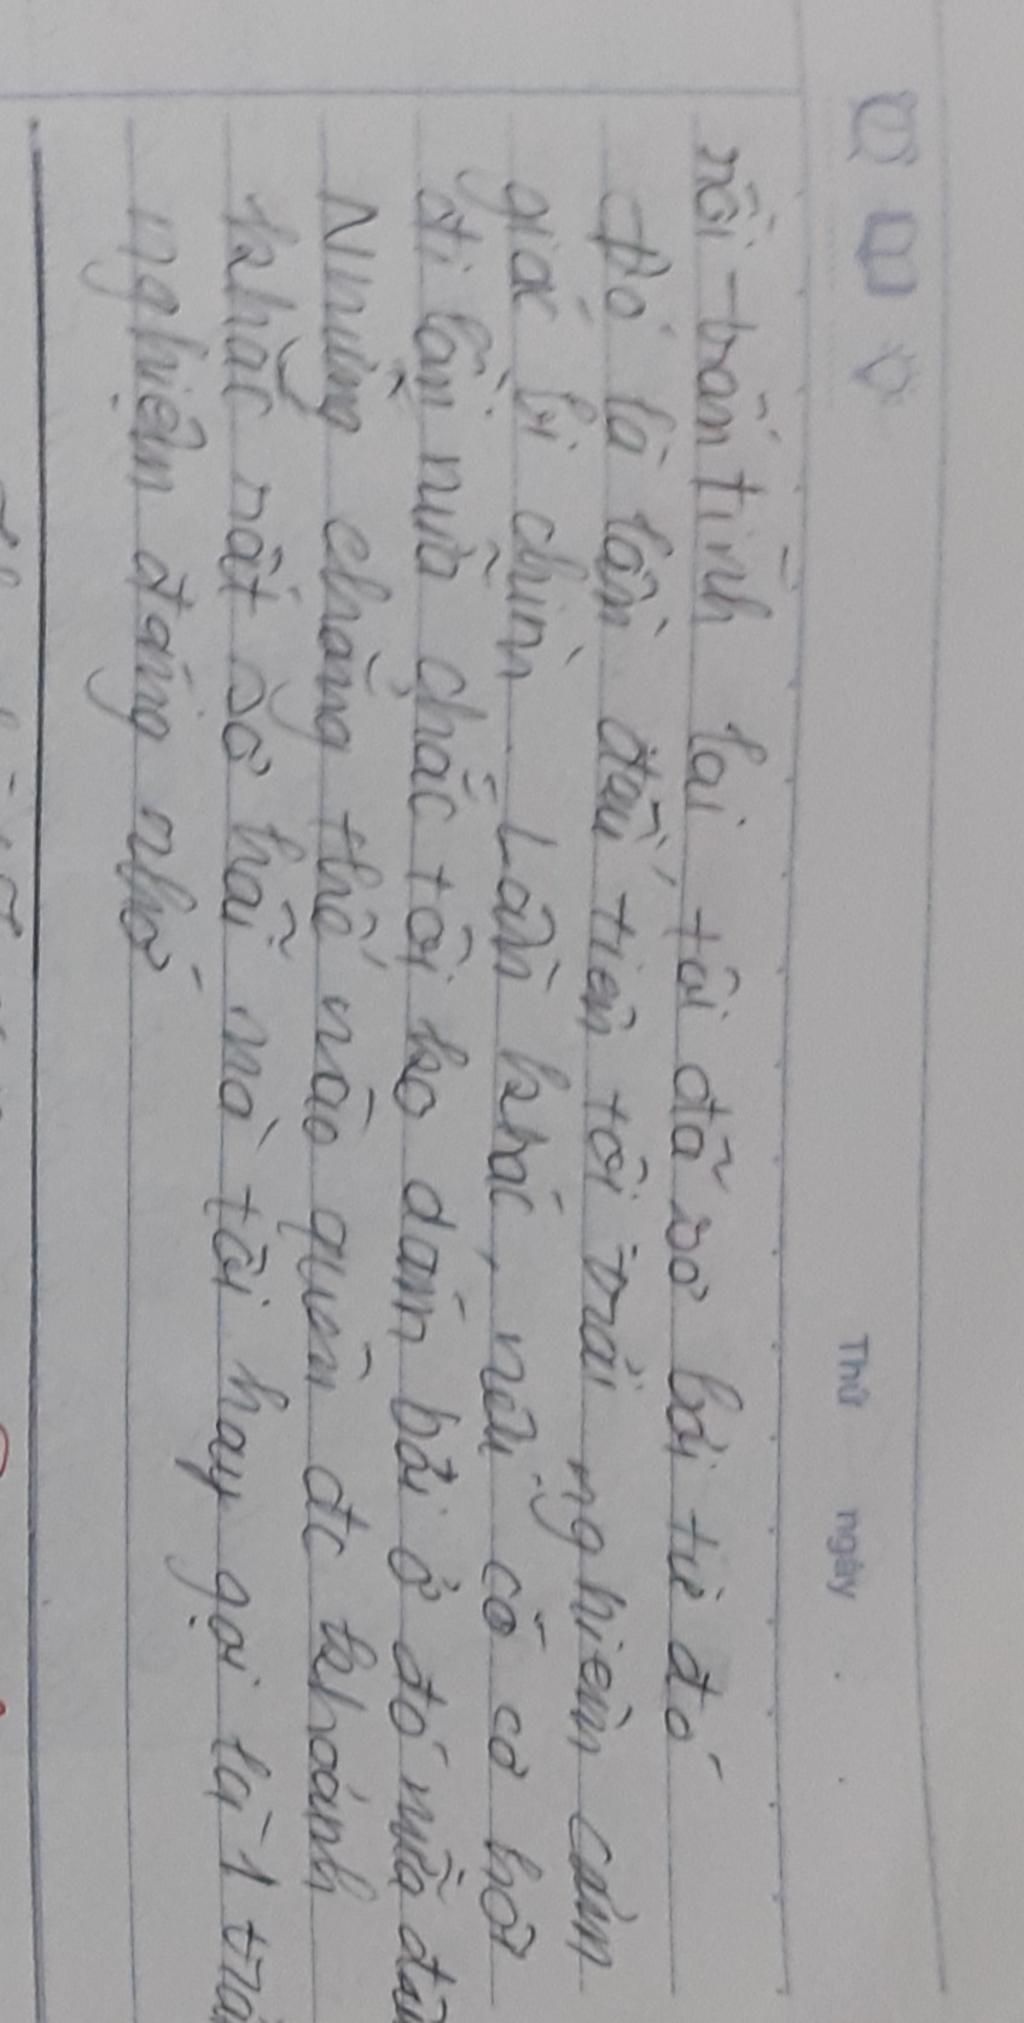 Thứ ngày
rồi trấn tĩnh lại, tôi đã sờ bơi từ đó
Đó là lần đầu tiên tôi trải nghiệm cảm
giác bị chìm. Lần khác, nếu có cơ hội
đi lần nữa chắc tôi ko dám bơi ở đó nữa đâu
Nhưng chẳng thể nào quên đc khoảnh
khắc rất sợ hãi mà tôi hay gọi là 1 trải
nghiệm đáng nhớ